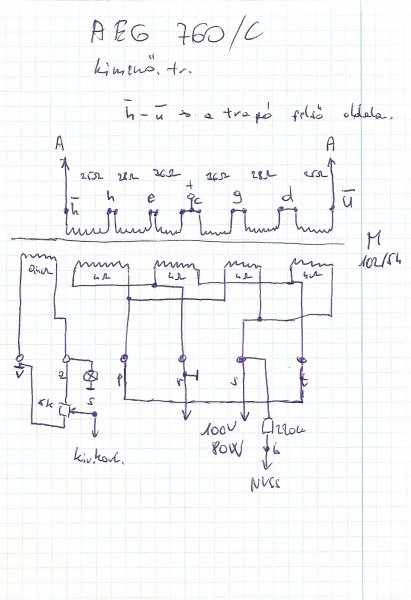 AEG 760/C
kimenő. tr.
h̄ - ū → a trapó felső oldala.
A A
25Ω 28Ω 36Ω + 36Ω 28Ω 25Ω
h̄ h e c g d ū
M
102/54
4Ω 4Ω 4Ω 4Ω
v z p r s t
5k s
100V
80W
220n
b
NVSS